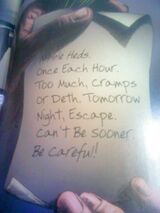 Heds.
Once Each Hour.
Too Much, Cramps
or Deth. Tomorrow
Night, Escape.
Can't Be Sooner.
Be Careful!